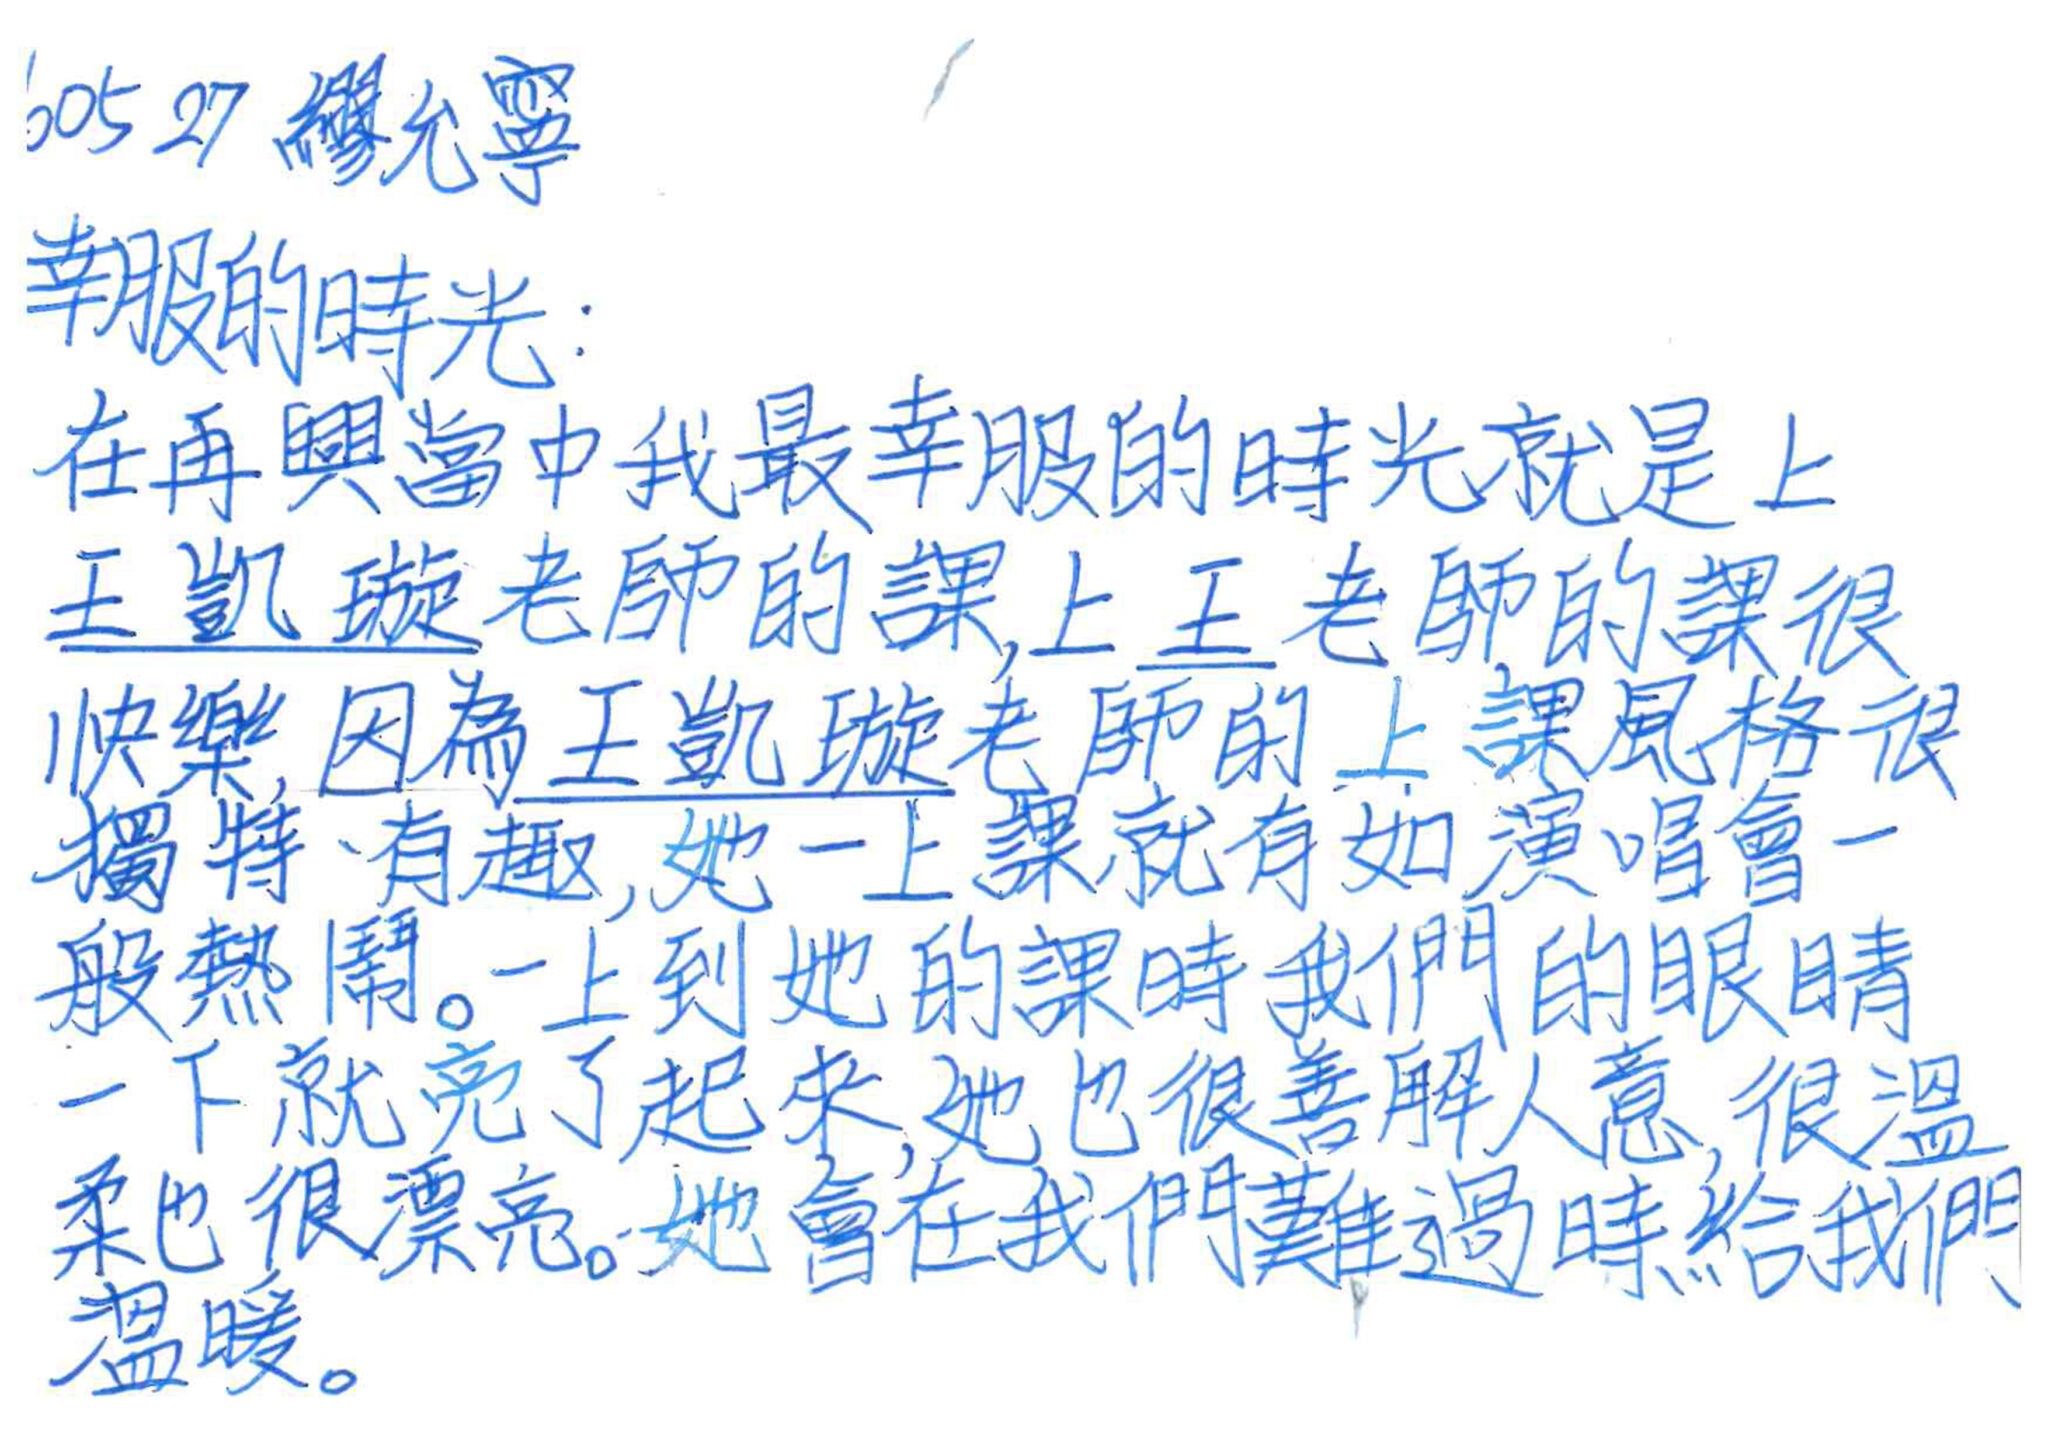 605 27 繆允寧
幸服的時光：
在再興當中我最幸服的時光就是上
王凱璇老師的課,上王老師的課很
快樂,因為王凱璇老師的上課風格很
獨特、有趣,她一上課就有如演唱會一
般熱鬧。一上到她的課時我們的眼睛
一下就亮了起來,她也很善解人意,很溫
柔也很漂亮。她會在我們難過時給我們
溫暖。